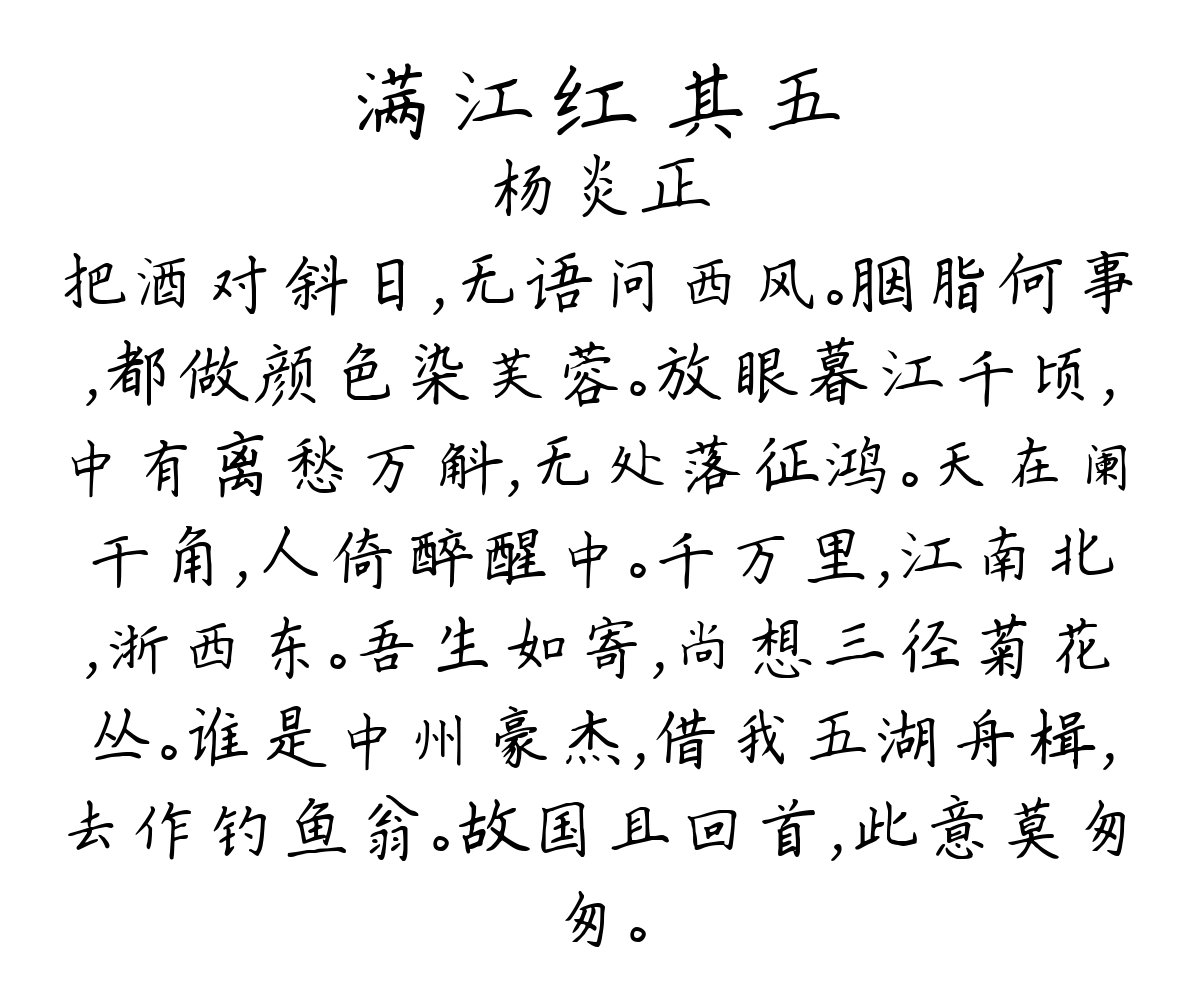 满江红其五
杨炎正
把酒对斜日,无语问西风。胭脂何事
,都做颜色染芙蓉。放眼暮江千顷,
中有离愁万斛,无处落征鸿。天在阑
干角,人倚醉醒中。千万里,江南北
,浙西东。吾生如寄,尚想三径菊花
丛。谁是中州豪杰,借我五湖舟楫,
去作钓鱼翁。故国且回首,此意莫匆
匆。